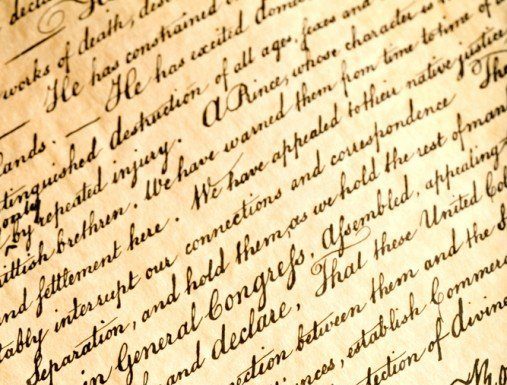 He
works of death, des
— He has constrained o
lands. — He has excited domes
tinguished destruction of all ages, sexes and
only
by repeated injury. A Prince, whose character is
ittish brethren. We have warned them from time to time of
and settlement here. We have appealed to their native justice
tably interrupt our connections and correspondence The
Separation, and hold them, as we hold the rest of mank
in General Congress, Assembled, appealing
and declare, That these United Col
nection between them and the S
nces, establish Commer
tection of divine